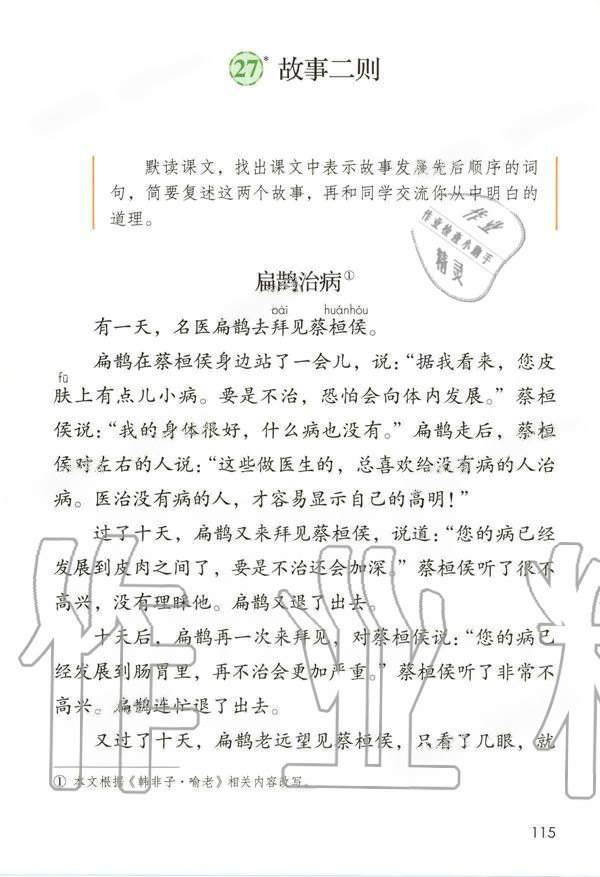 27* 故事二则
默读课文，找出课文中表示故事发展先后顺序的词
句，简要复述这两个故事，再和同学交流你从中明白的
道理。
作业
作业检查小助手
精灵
扁鹊治病①
bài huánhóu
有一天，名医扁鹊去拜见蔡桓侯。
扁鹊在蔡桓侯身边站了一会儿，说：“据我看来，您皮
fū
肤上有点儿小病。要是不治，恐怕会向体内发展。”蔡桓
侯说：“我的身体很好，什么病也没有。”扁鹊走后，蔡桓
侯对左右的人说：“这些做医生的，总喜欢给没有病的人治
病。医治没有病的人，才容易显示自己的高明！”
过了十天，扁鹊又来拜见蔡桓侯，说道：“您的病已经
发展到皮肉之间了，要是不治还会加深。”蔡桓侯听了很不
高兴，没有理睬他。扁鹊又退了出去。
十天后，扁鹊再一次来拜见，对蔡桓侯说：“您的病已
经发展到肠胃里，再不治会更加严重。”蔡桓侯听了非常不
高兴。扁鹊连忙退了出去。
又过了十天，扁鹊老远望见蔡桓侯，只看了几眼，就
① 本文根据《韩非子·喻老》相关内容改写。
115
作业精